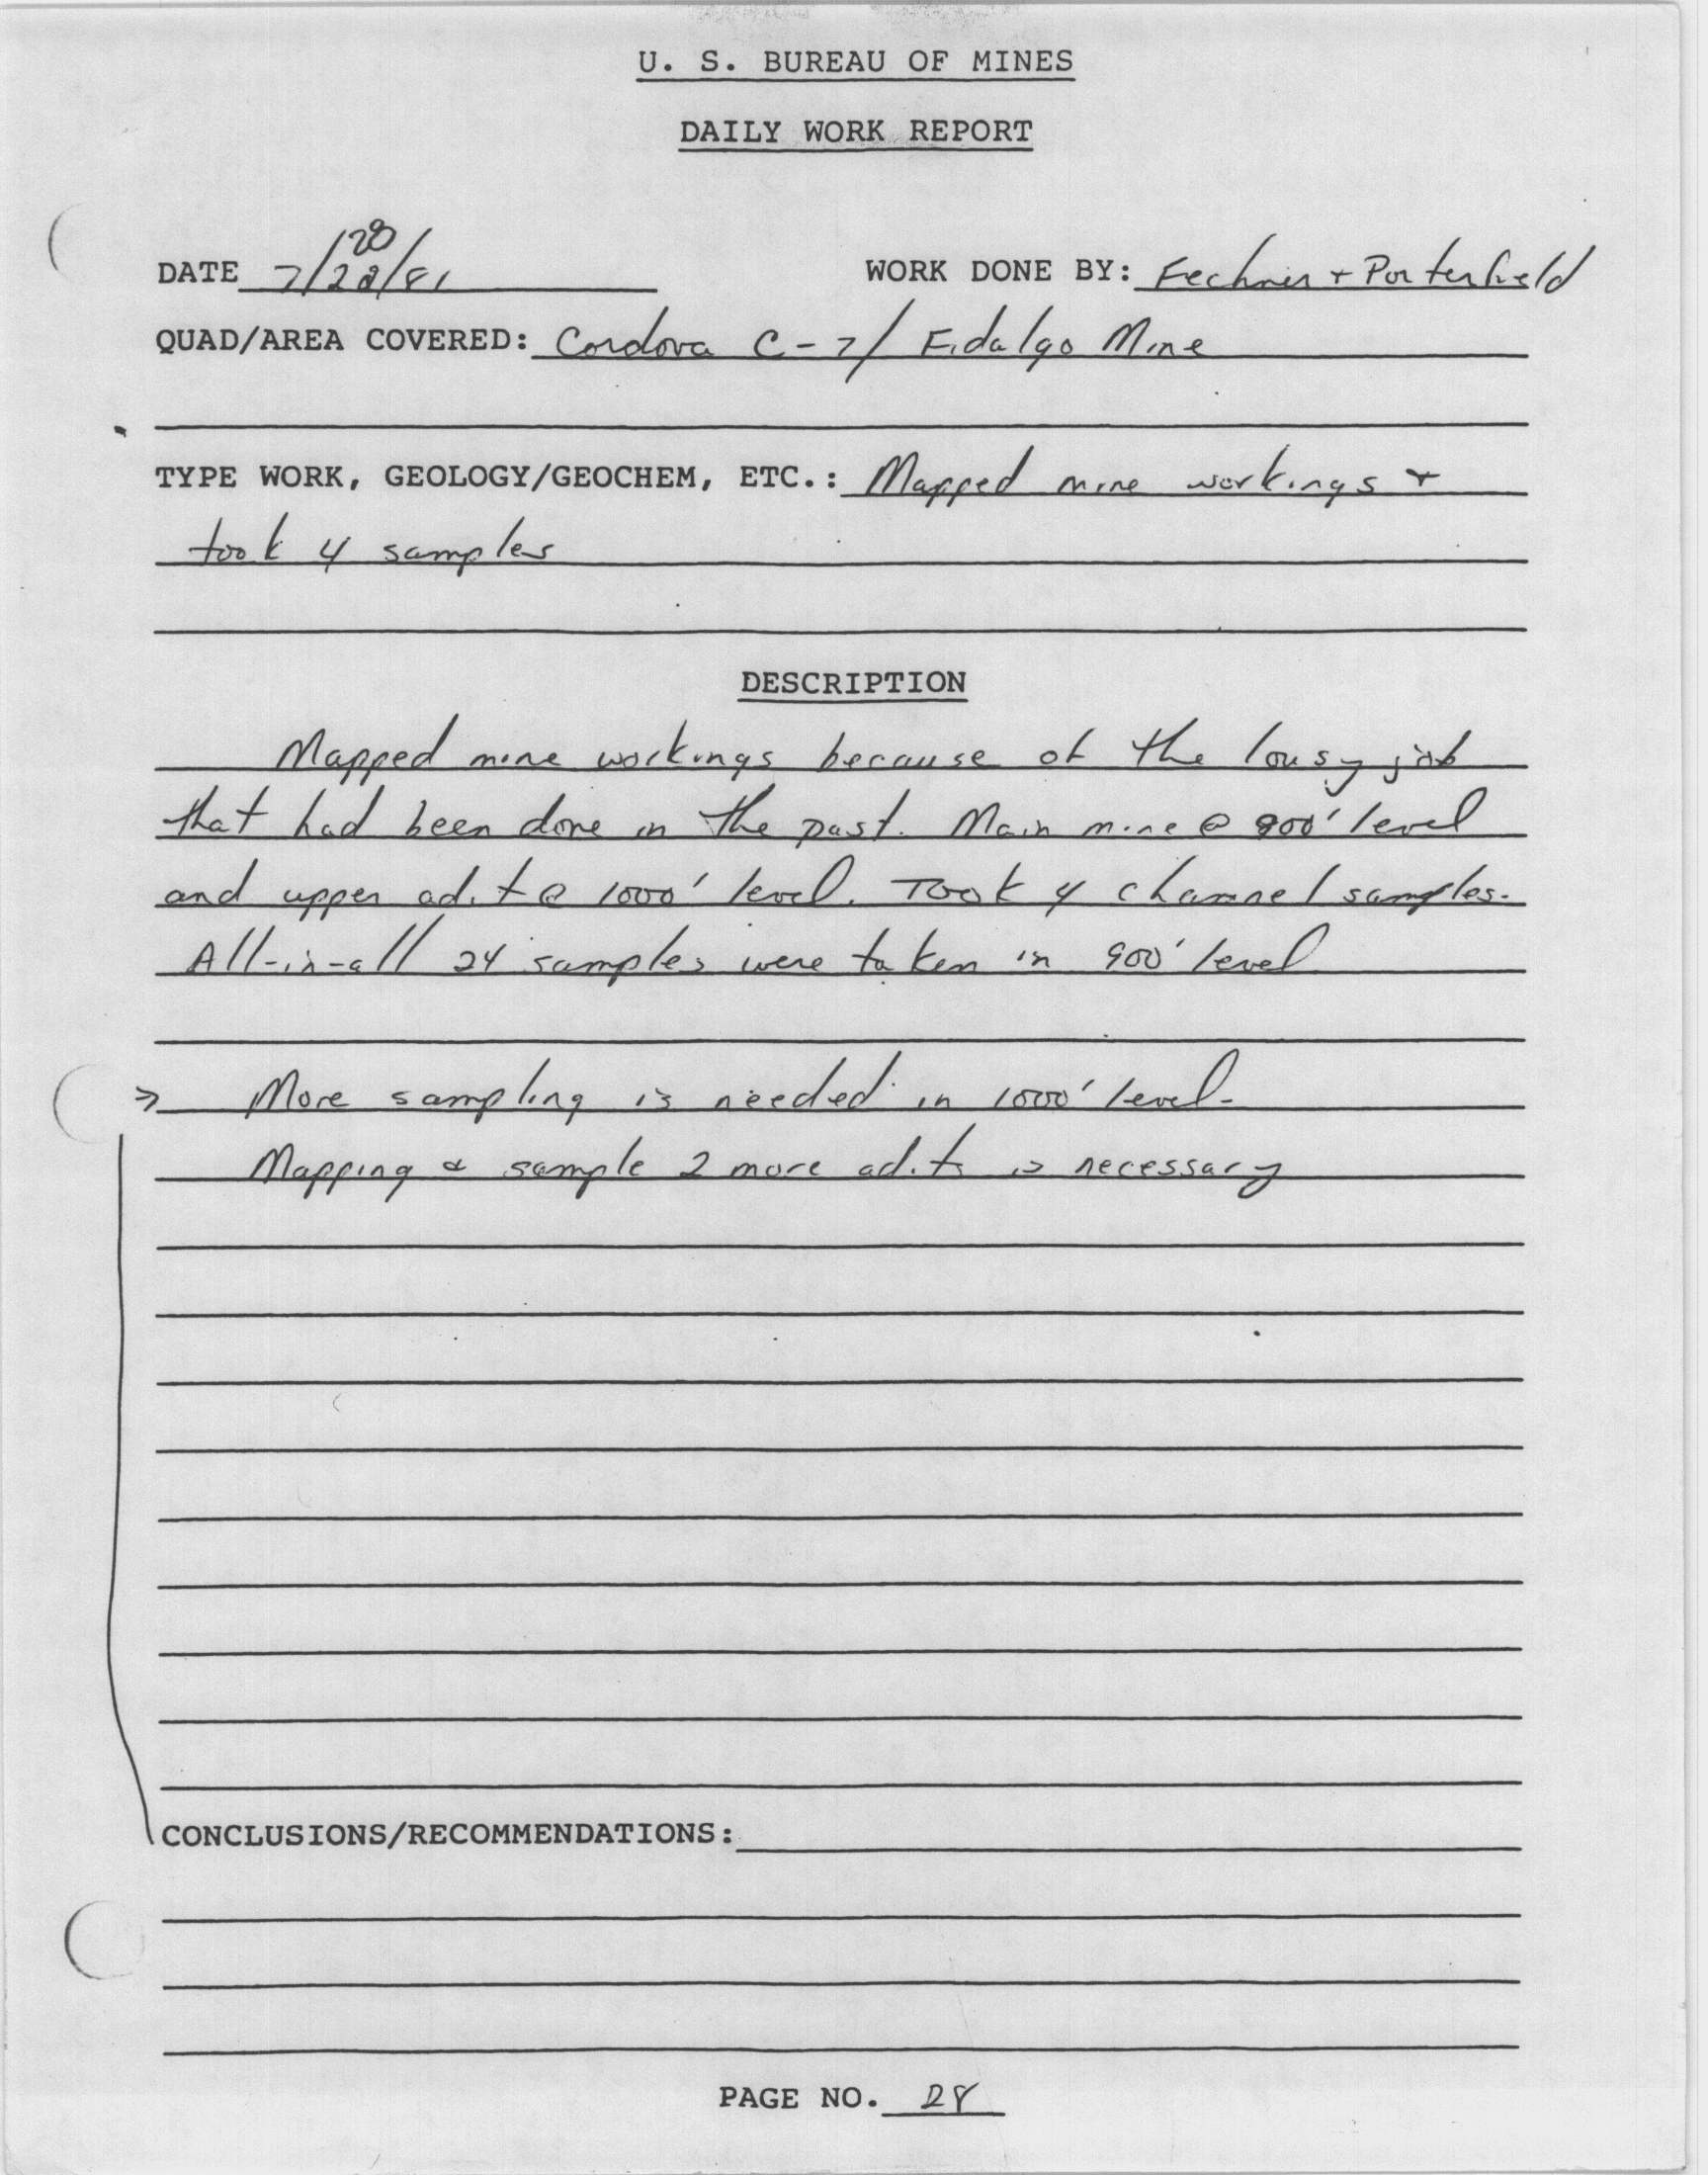 U. S. BUREAU OF MINES
DAILY WORK REPORT
DATE 7/28/81 WORK DONE BY: Fechner + Porterfield
QUAD/AREA COVERED: Cordova C-7/ Fidalgo Mine
TYPE WORK, GEOLOGY/GEOCHEM, ETC.: Mapped mine workings +
took 4 samples
DESCRIPTION
Mapped mine workings because of the lousy job
that had been done in the past. Main mine @ 900' level
and upper adit @ 1000' level. Took 4 channel samples.
All-in-all 24 samples were taken in 900' level
> More sampling is needed in 1000' level.
Mapping & sample 2 more adits is necessary
CONCLUSIONS/RECOMMENDATIONS:
PAGE NO. 28